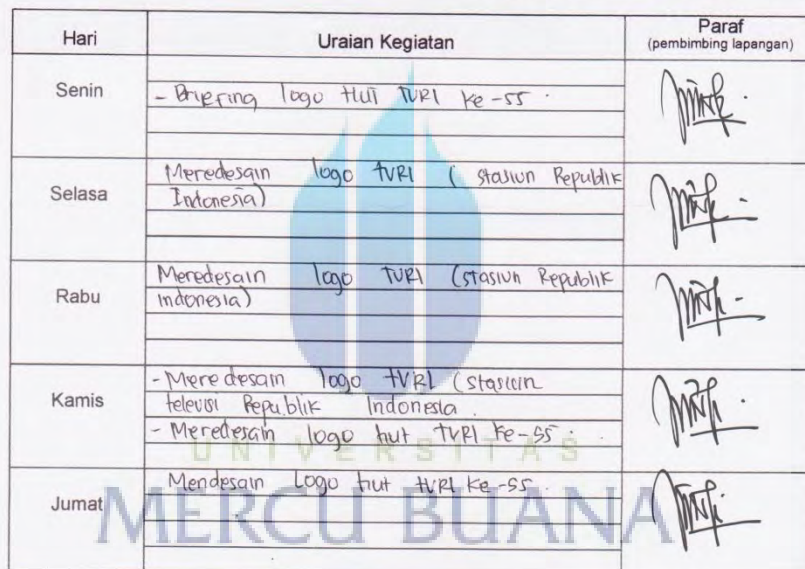 Hari Uraian Kegiatan Paraf
(pembimbing lapangan)
Senin
- Briefing logo HUT TVRI ke-55.
Selasa
Meredesain logo TVRI ( stasiun Republik
Indonesia)
Rabu
Meredesain logo TVRI (stasiun Republik
indonesia)
Kamis
- Meredesain logo TVRI (stasiun
televisi Republik Indonesia.
- Meredesain logo hut TVRI ke-55.
UNIVERSITAS
Jumat
Mendesain Logo hut tVRI ke-55.
MERCU BUANA